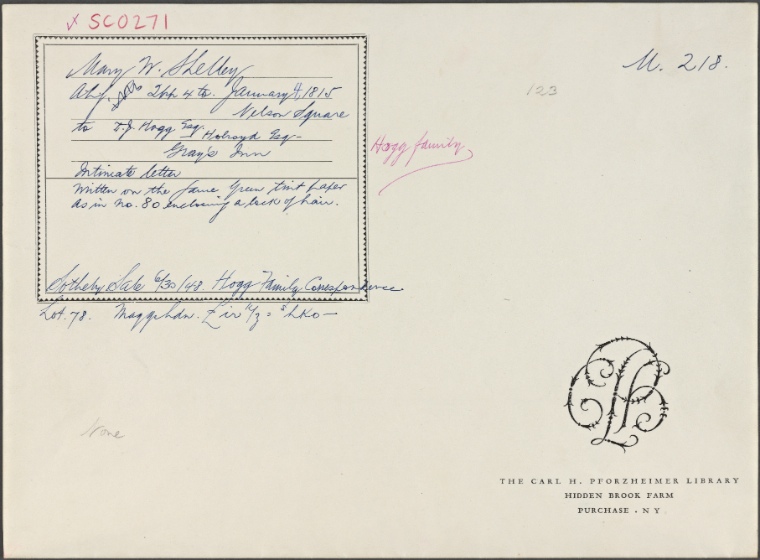 ✓ SC0271
M. 218.
123
Mary W. Shelley
2pp 4to. January 4, 1815
Nelson Square
to T.J. Hogg Esq.
Holroyd Esq-
Gray's Inn
Intimate letter
Written on the same green tint paper
as in no. 80 enclosing a lock of hair.
Hogg family
Sotheby Sale 6/30/48. Hogg Family Correspondence
Lot. 78. Maggs Ldn.
None
THE CARL H. PFORZHEIMER LIBRARY
HIDDEN BROOK FARM
PURCHASE · N Y